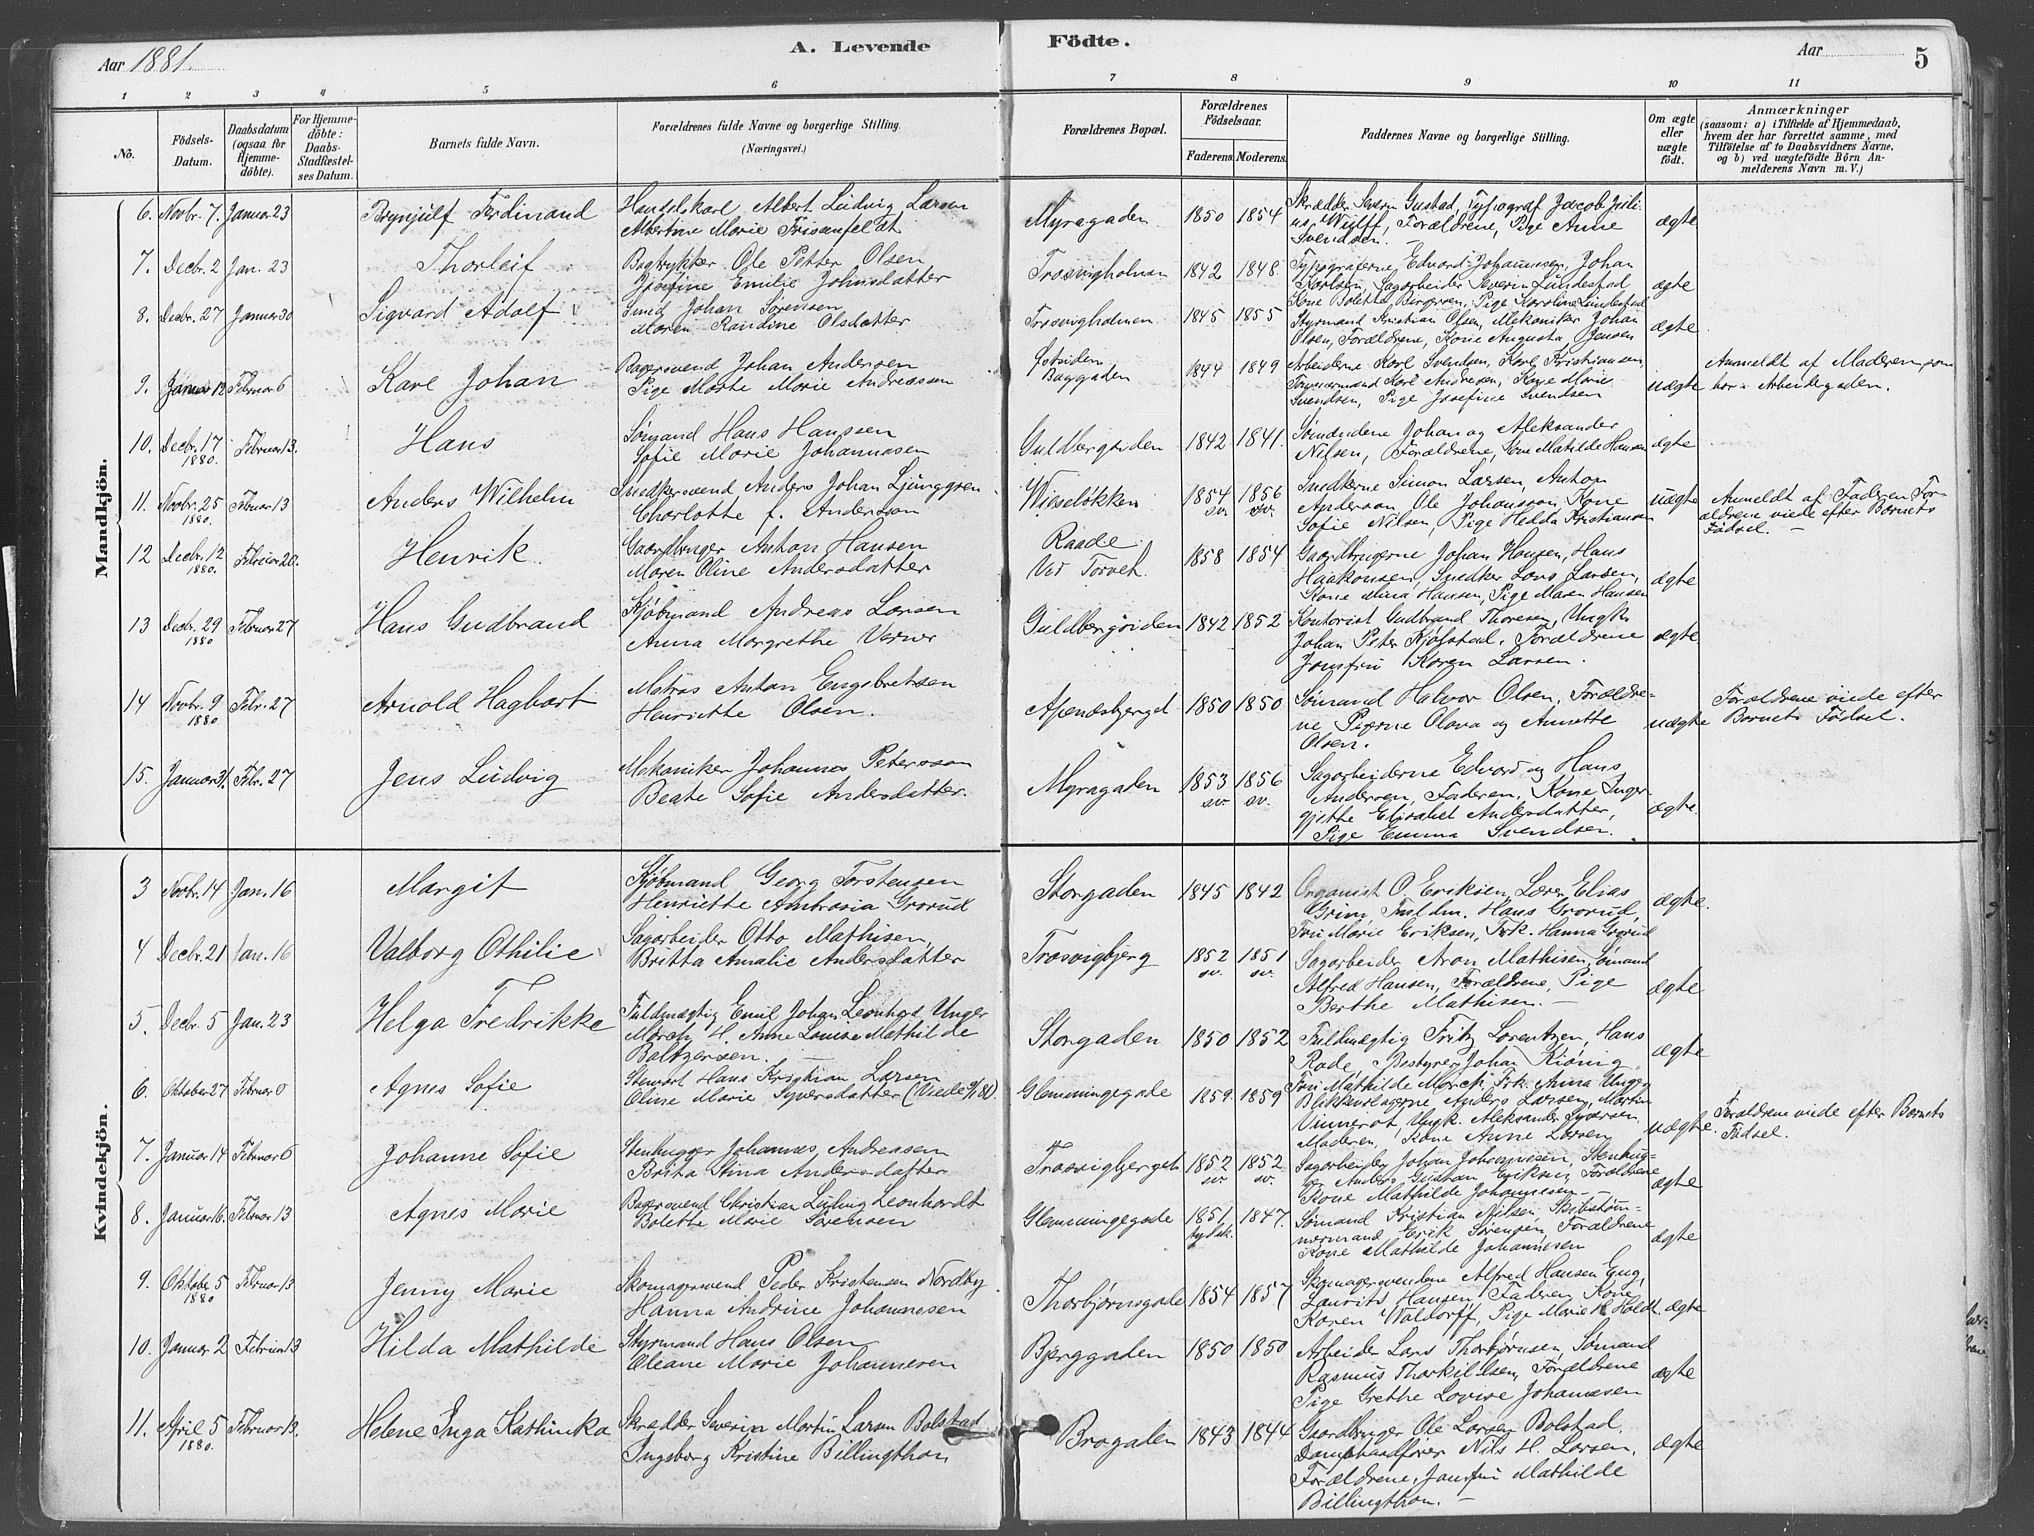 Aar 1881.
A. Levende
Födte.
Aar
5
1 2 3 4 5 6 7 8 9 10 11
No.
Födsels-Datum.
Daabsdatum (ogsaa for Hjemmedöbte).
For Hjemmedöbte: Daabs-Stadfæstelses Datum.
Barnets fulde Navn.
Forældrenes fulde Navne og borgerlige Stilling.
(Næringsvei.)
Forældrenes Bopæl.
Forældrenes Födselsaar.
Faderens. Moderens.
Faddernes Navne og borgerlige Stilling.
Om ægte eller uægte födt.
Anmærkninger
(saasom: a) i Tilfælde af Hjemmedaab,
hvem der har forrettet samme, med
Tilföielse af to Daabsvidners Navne,
og b) ved uægtefödte Börn An-
melderens Navn m. V.)
Mandkjön.
6. Novbr. 7. Januar 23 Brynjulf Ferdinand
Handelskarl Albert Ludvig Larsen
Albertine Marie
Myragaden 1850 1854
Skrædder Severin Gustad, Typograf Jacob Juli-
us Wulff, Forældrene, Pige Anne
Svendsen.
ægte
7. Decbr. 2 Jan. 23 Thorleif
Bogtrykker Ole Petter Olsen
Josefine Emilie Johnsdatter
Trosvigholmen 1842 1848.
Typograferne Edvard Johannesen, Johan
Karlsen, Sagarbeider Severin Lundestad
Kone Bolette Børgersen, Pige Karoline Lundestad
ægte
8. Decbr. 27 Januar 30 Sigvard Adolf
Smed Johan Sørensen
Maren Randine Olsdatter
Trosvigholmen 1845 1855
Styrmand Kristian Olsen, Mekaniker Johan
Olsen, Forældrene, Kone Augusta Jensen
ægte
9. Januar 12 Februar 6 Karl Johan
Bagersvend Johan Andersen
Pige Marte Marie Andreassen
Baggaden 1844 1849
Arbeiderne Karl Svendsen, Karl Kristiansen,
Karl Andresen, Kone Marie
Svendsen, Pige Josefine Svendsen
uægte
Anmeldt af Moderen som
bor i Arbeidergaden.
10. Decbr. 17 1880. Februar 13. Hans
Sømand Hans Hanssen
Sofie Marie Johannesen
Guldbergsiden 1842 1841.
Sømændene Johan og Aleksander
Nilsen, Forældrene, Kone Matilde Hansen
ægte
11. Novbr. 25 1880. Februar 13 Anders Wilhelm
Snedkersvend Anders Johan Ljunggren
Charlotte f. Anderson
Wieseløkken 1854 sv. 1856 sv.
Snedkerne Simon Larsen, Anton
Andersen Ole Johanson, Kone
Sofie Nilsen, Pige Hedda Kristiansen
uægte
Anmeldt af Faderen For-
ældrene viede efter Barnets
Fødsel. —
12 Decbr. 12 1880. Februar 20. Henrik
Gaardbruger Anton Hansen
Maren Oline Andersdatter
Raade
Ved Torvet 1858 1854
Gaardbrugerne Johan Hansen, Hans
Haakonsen, Snedker Lars Larsen,
Kone Mina Hansen, Pige Maren Hansen
ægte
13 Decbr. 29 1880 Februar 27 Hans Gudbrand
Kjøbmand Andreas Larsen
Anna Margrethe Verner
Guldbergsiden 1842 1852
Kontorist Gudbrand Thoresen, Ungk.
Johan Peter Kjølstad, Forældrene
Jomfru Karen Larsen.
ægte
14 Novbr. 9 1880 Febr. 27 Arnold Hagbart
Matros Anton Engebretsen
Henriette Olsen.
Apenæsbjerget 1850 1850
Sømand Halvor Olsen, Forældre-
ne Pigerne Olava og Annette
Olsen.
uægte
Forældrene viede efter
Barnets Fødsel.
15. Januar 31. Febr. 27 Jens Ludvig
Mekaniker Johannes Peterson
Beate Sofie Andersdatter.
Myragaden 1853 sv. 1856 sv.
Sagarbeiderne Edvard og Hans
Andersen, Faderen, Kone Inger
gjette Elisabet Andersdatter,
Pige Emma Svendsen.
ægte.
Kvindekjön.
3 Novbr. 14 Jan. 16 Margit
Kjøbmand Georg Torstensen
Henriette Ambrosia Grorud
Storgaden 1845 1842
Organist O. Eriksen, Lærer Elias
Grim, Hans Grorud,
Fru Marie Eriksen, Frk. Hanna Grorud
ægte.
4 Decbr. 21 Jan. 16 Valborg Othilie
Sagarbeider Otto Mathisen,
Britta Amalie Andersdatter
Trosvigbjerg 1852 sv. 1851 sv.
Sagarbeider Aron Mathisen, Sømand
Alfred Hansen, Forældrene, Pige
Berthe Mathisen. —
ægte
5. Decbr. 5 Jan. 23 Helga Fredrikke
Fuldmægtig Emil Johan Leonhard Unger
Mørch, H. Anne Louise Mathilde
Baltzersen. —
Storgaden 1850 1852
Fuldmægtig Fritz Lorentzen, Hans
Rode, Bestyrer Johan Kiönig
Fru Mathilde Mørch, Frk. Anna Unger
ægte
6. Oktober 27 Februar 6 Agnes Sofie
Stewart Hans Kristian Larsen
Oline Marie Syversdatter
Glemmingegade 1859. 1859
Blikkenslagerne Anders Larsen, Martin
Vinnerøt, Ungk. Aleksander Syversen
Moderen, Kone Anne Larsen
uægte.
Forældrene viede efter Barnets
Fødsel.
7. Januar 14 Februar 6 Johanne Sofie
Stenhugger Johannes Andreasen
Brita Stina Andersdatter
Trosvigbjerget 1852 sv. 1852 sv.
Sagarbeider Johan Johannesen, Stenhug-
ger Anders Gustav Eriksen, Forældrene
Kone Mathilde Johannesen —
ægte
8. Januar 16. Februar 13 Agnes Marie
Bagersvend Christian Ludvig Leonhardt
Bolette Marie Sørensen
Glemmingegade 1851. tydsk. 1847.
Sømand Kristian Nilsen, Skibstøm-
mermand Erik Sørensen, Forældrene
Kone Mathilde Johannesen
ægte
9. Oktober 5 1880 Februar 13 Jenny Marie
Skomagersvend Peder Kristensen Nordby
Hanna Andrine Johannesen
Thorbjørnsgade 1854 1857
Skomagersvendene Alfred Hansen Eng,
Laurits Hansen, Faderen, Kone
Karen Waldorff, Pige Marie K. Holdt.
ægte
10. Januar 2 Februar 13 Hilda Mathilde
Styrmand Hans Olsen
Oleane Marie Johannesen
Bjerggaden 1850 1850
Arbeider Lars Thorbjørnsen, Sømand
Rasmus Thorkildsen, Forældrene
Pige Grethe Lovise Johannesen
ægte
11. April 5 1880. Februar 13. Helene Inga Kathinka
Skrædder Severin Martin Larsen Bolstad
Ingeborg Kristine Billingthon
Brogaden 1843 1844
Gaardbruger Ole Larsen Bolstad,
Dampbaadfører Nils H. Larsen,
Forældrene, Jomfru Mathilde
Billingthon. —
ægte